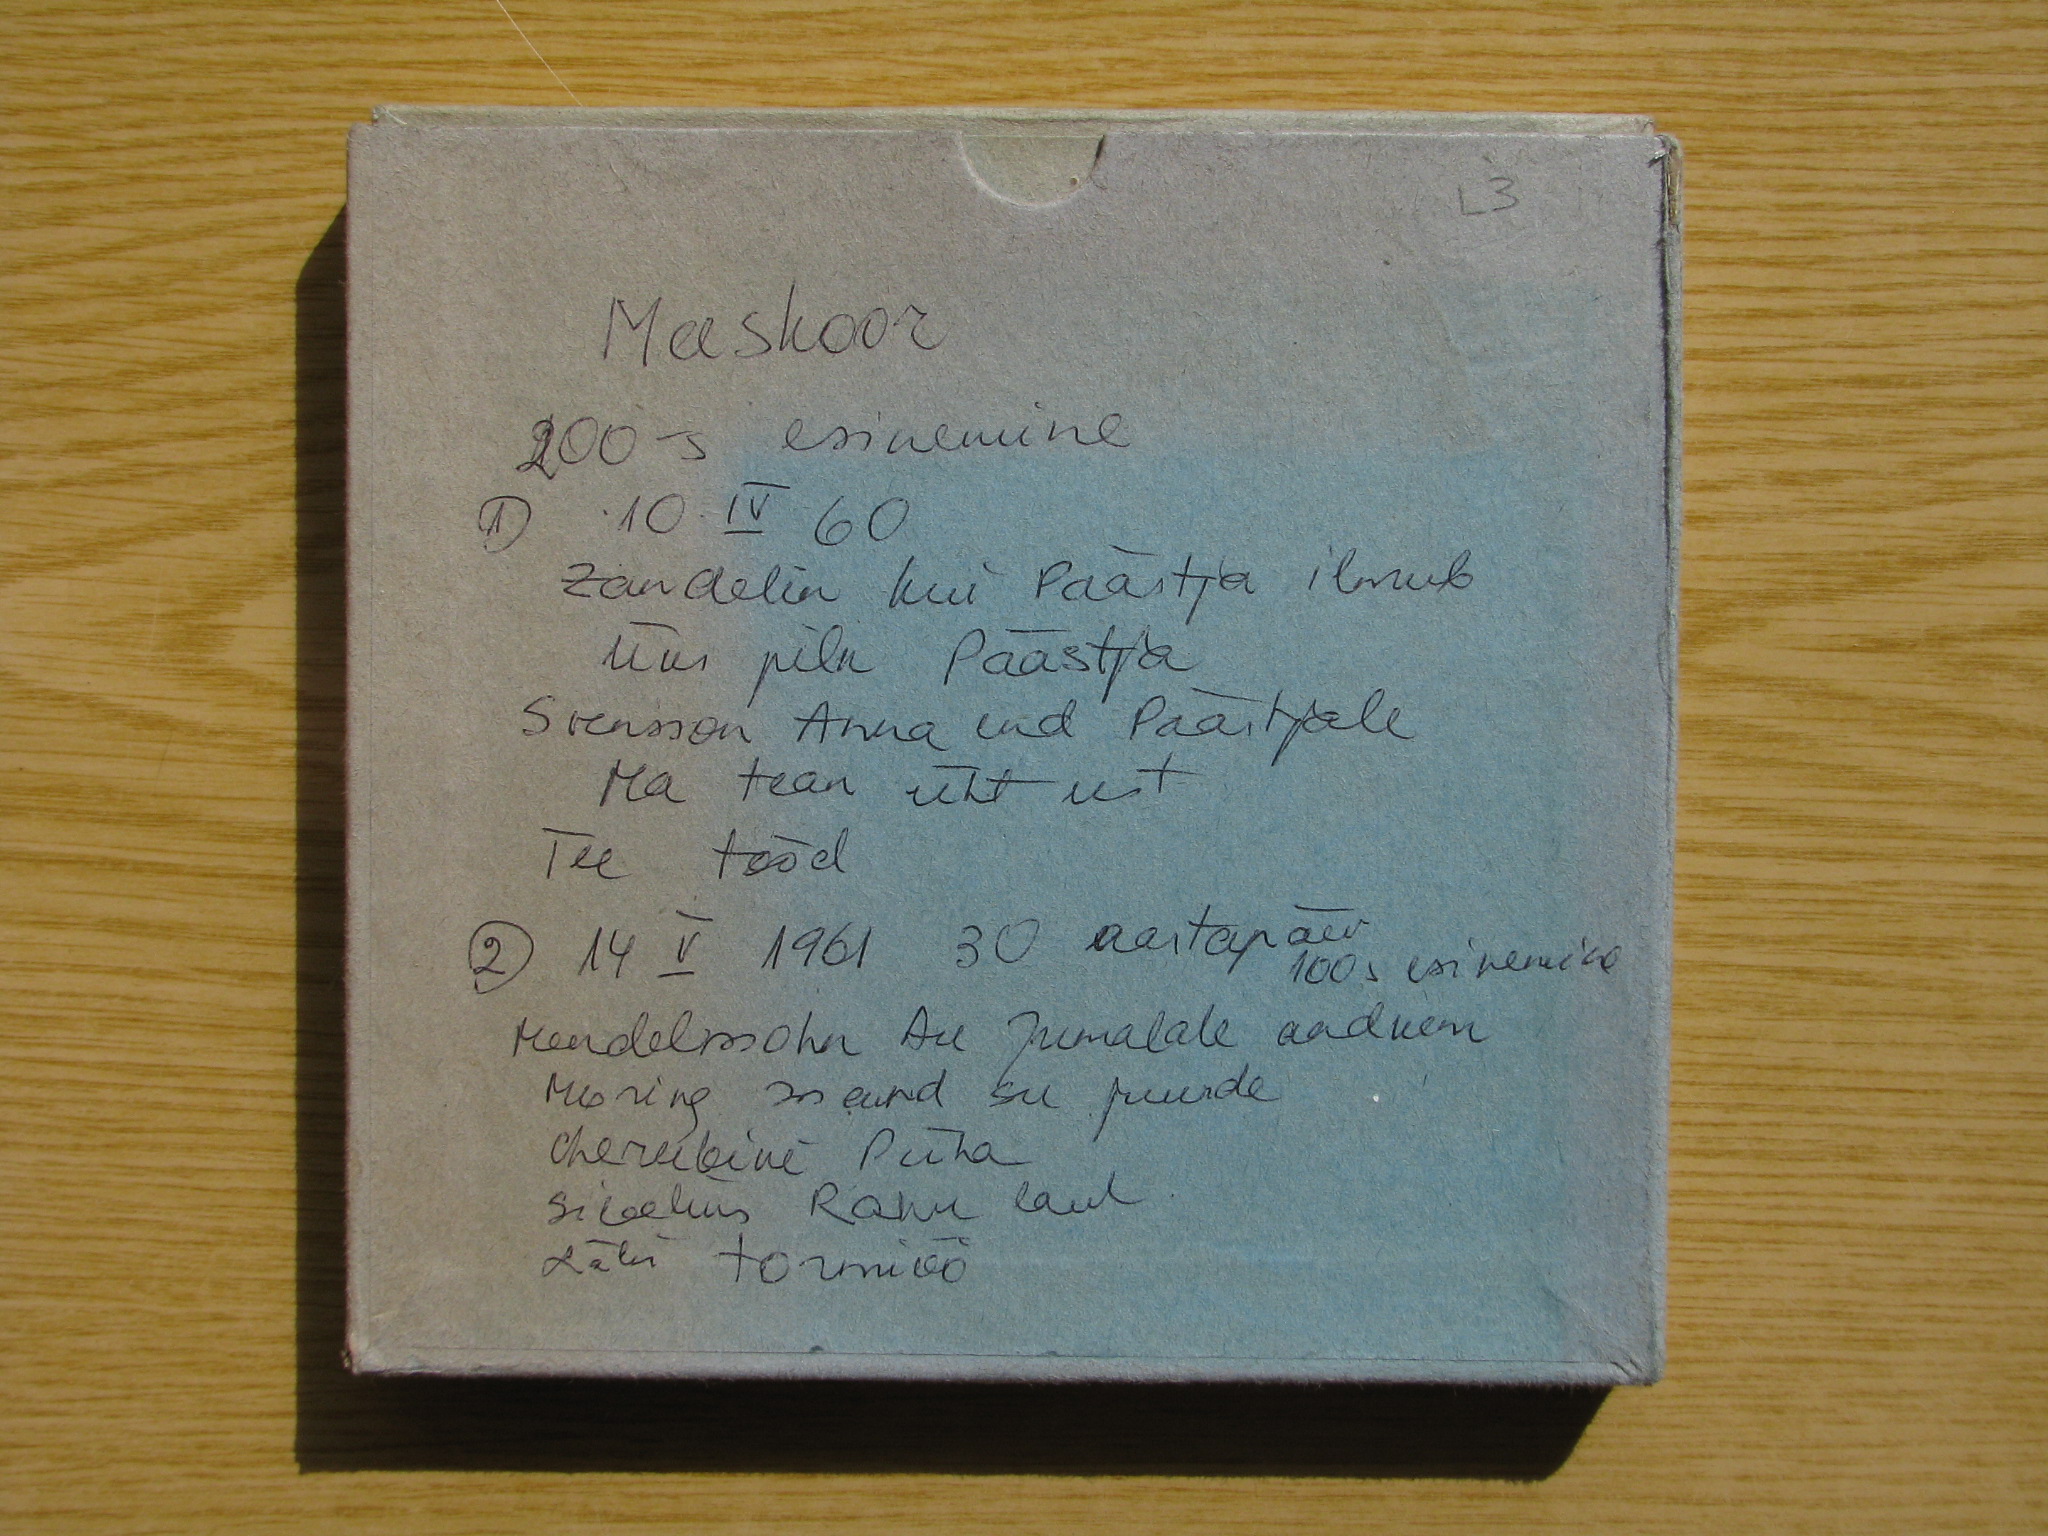 L3
Meeskoor
200-s esinemine
① 10 IV 60
Zandelin kui Päästja ilmub
Üks pilk Päästja
Svensson Anna end Päästjale
Ma tean üht ust
Tee tööd
② 14 V 1961 30 aastapäev
100s esinemine
Mendelssohn Au Jumalale andkem
Mu ring saand su juurde
Cherubini Püha
Sibelius Rahu laul
Läti tormiöö